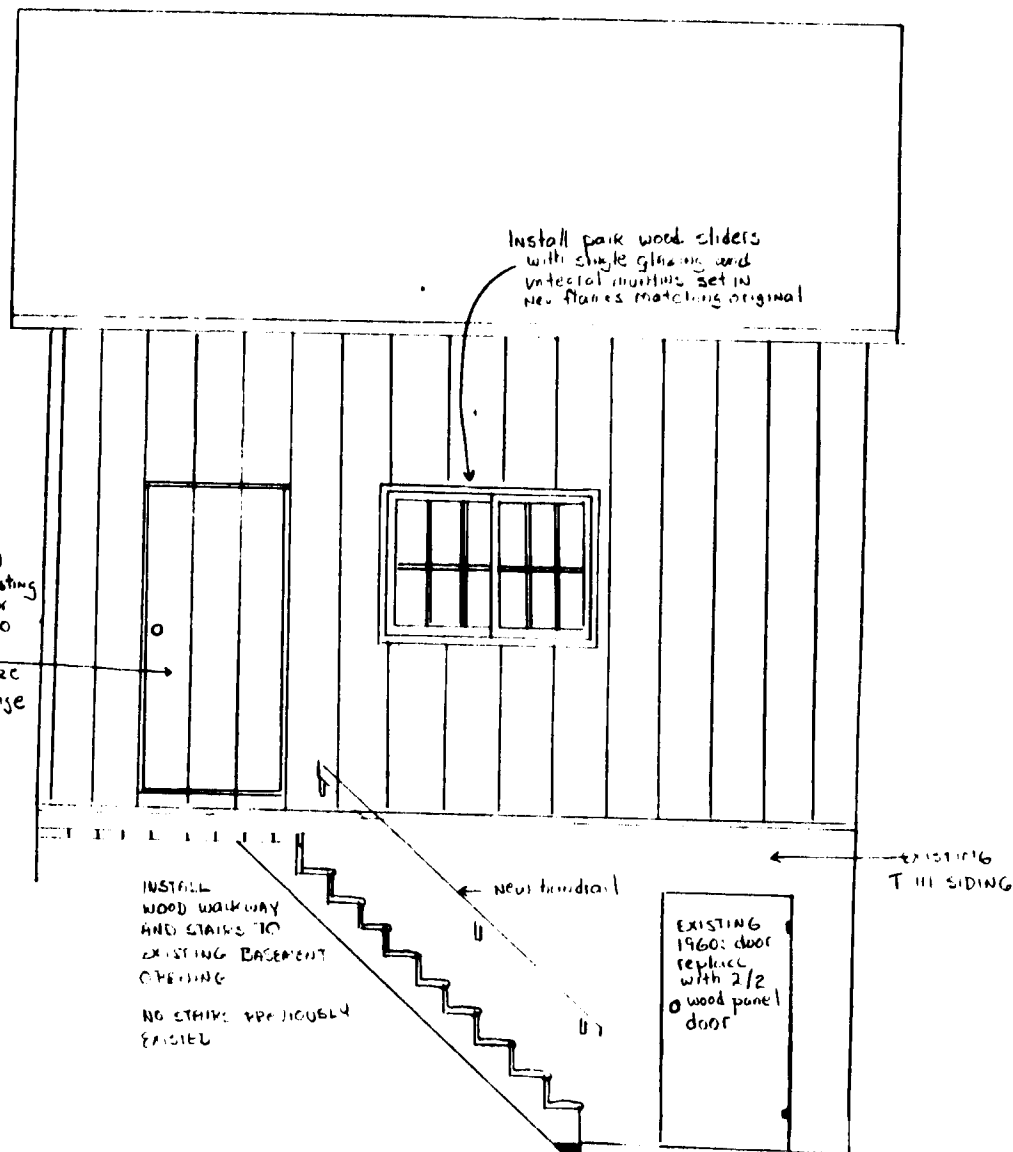 Install pair wood sliders
with single glazing and
integral muntins set in
new frames matching original
New handrail
INSTALL
WOOD WALKWAY
AND STAIRS TO
EXISTING BASEMENT
OPENING
NO STAIRS PREVIOUSLY
EXISTED
EXISTING
T 111 SIDING
EXISTING
1960s door
replace
with 2/2
wood panel
door